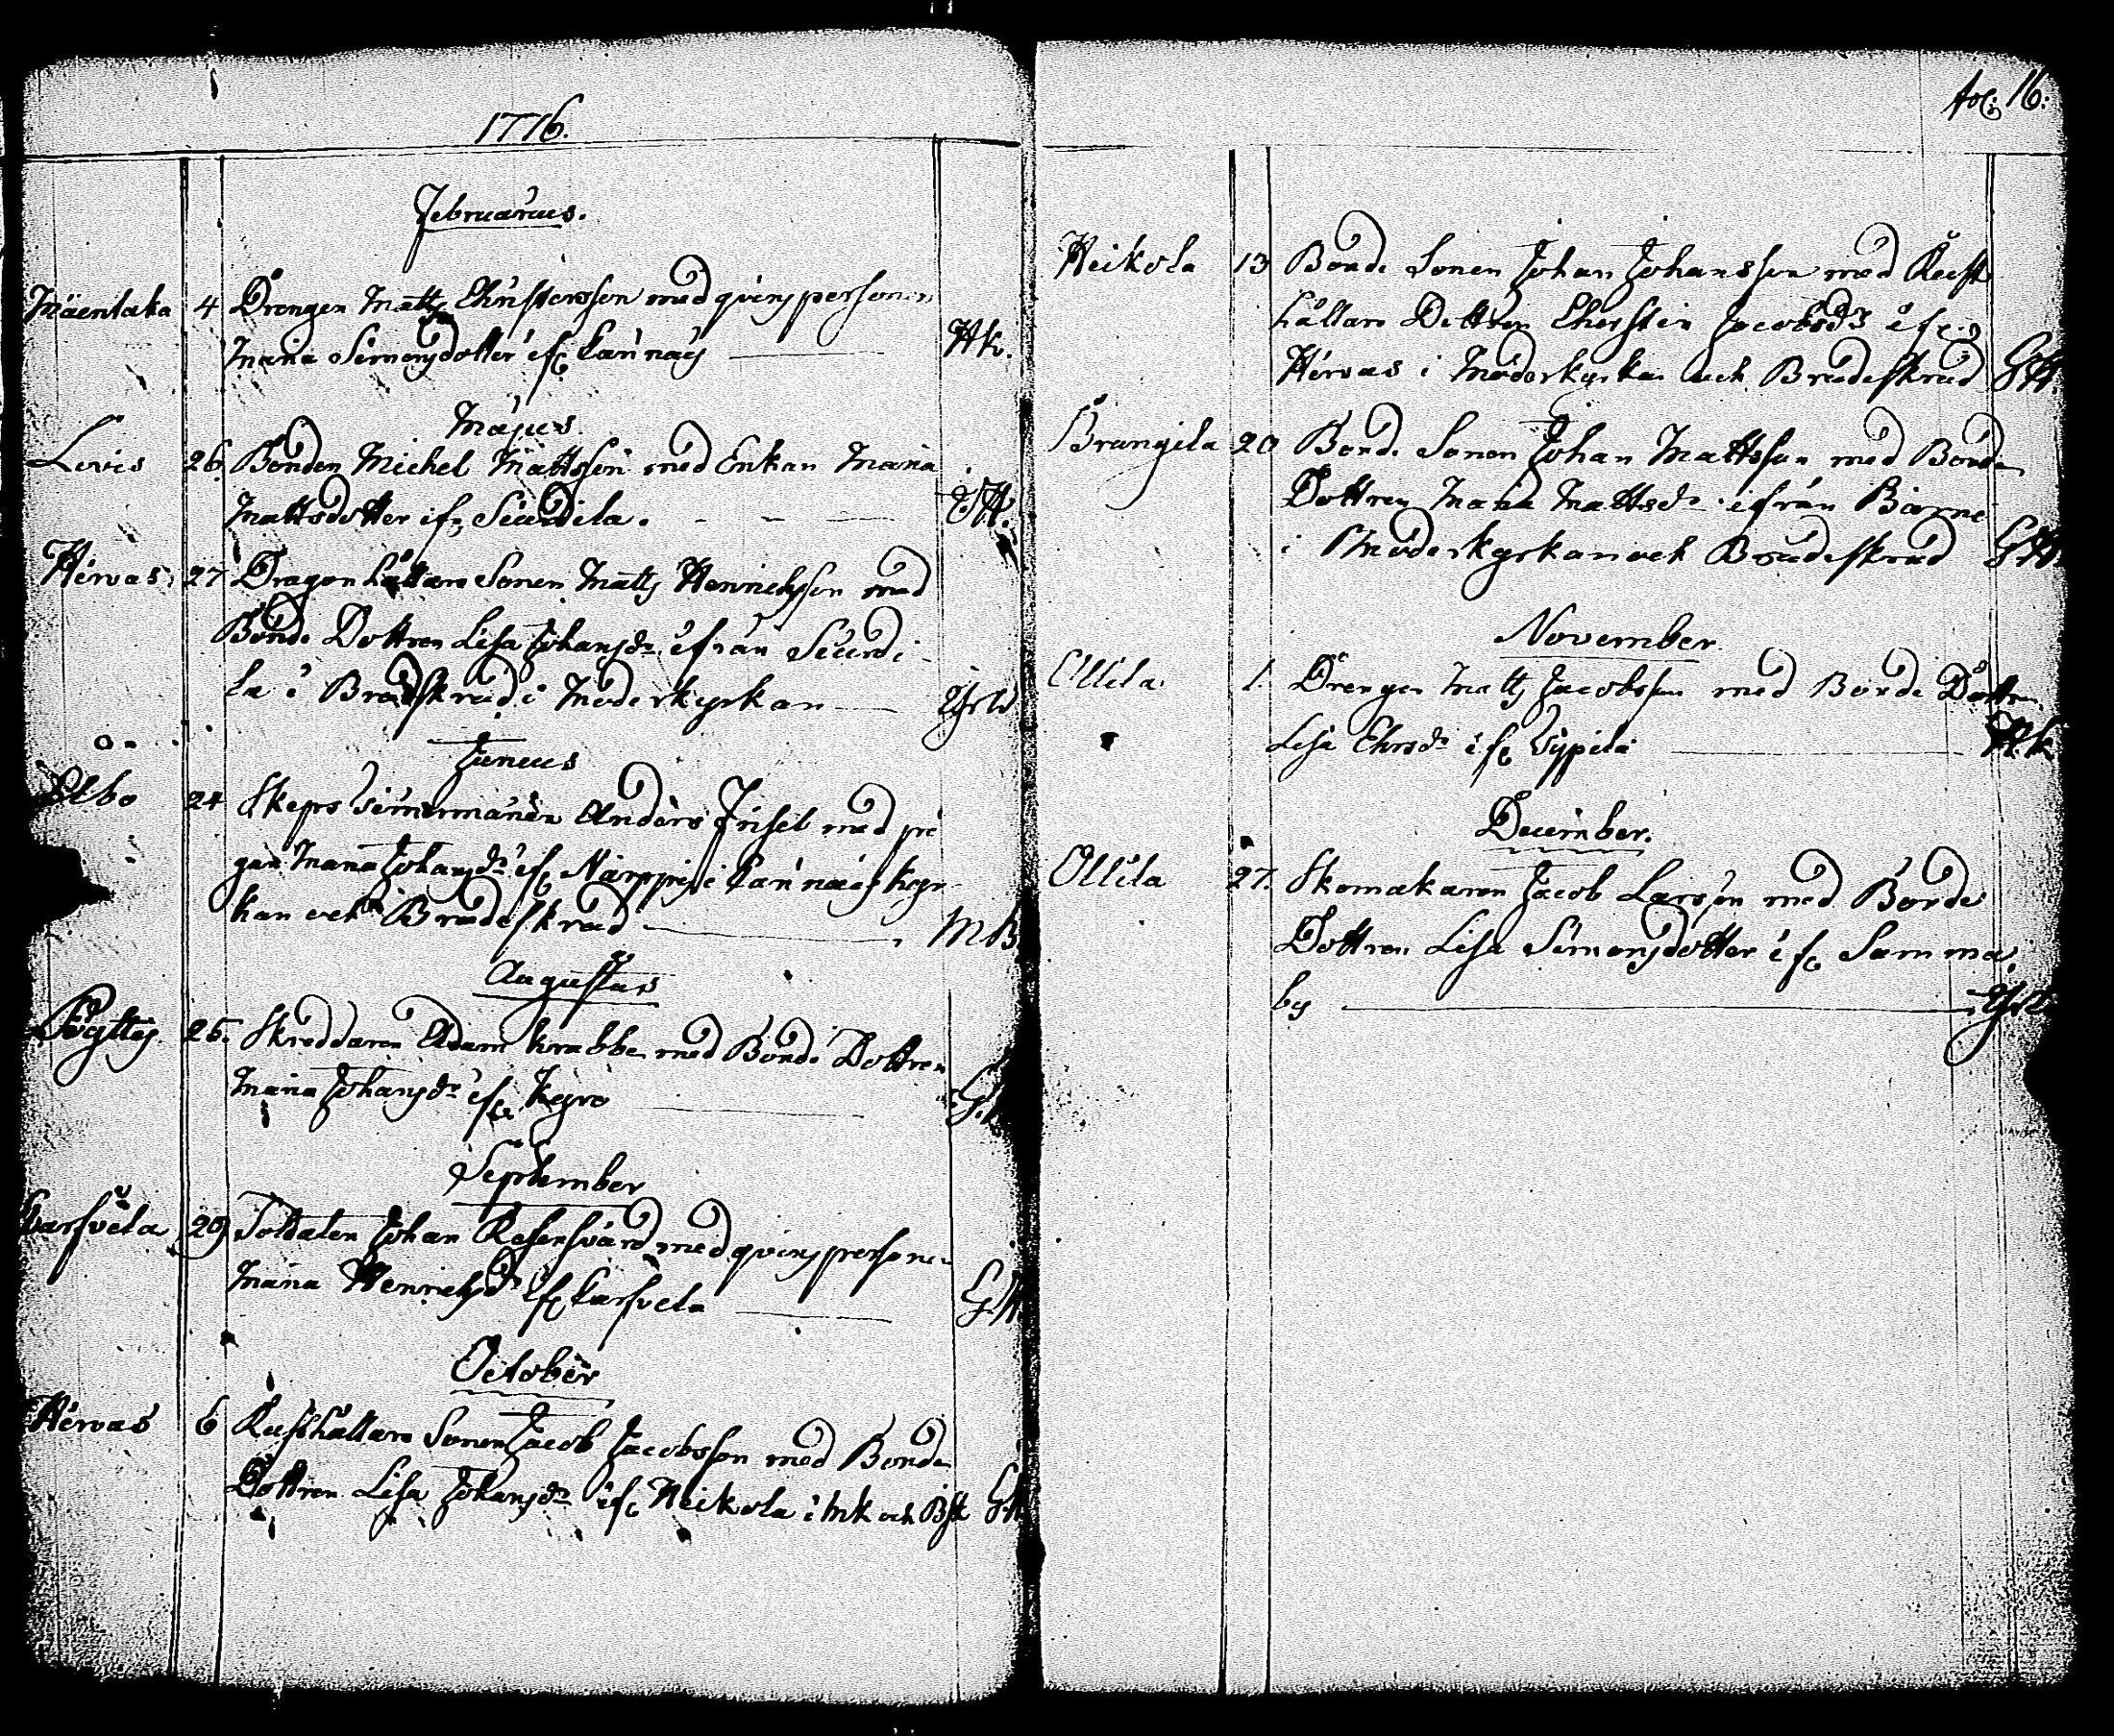 1716.
Februarius.
Mäentaka 4 Drengen Matts Christersson med qvins personen
Maria Simonsdotter ifr Cannäs Hk.
Majus.
Levis 26 Bonden Michel Mattsson med Enkan Maria
Mattsdotter ifr Siurdila.
Hirvas 27 Dragon hållare Sonen Matts Henrichsson med
Bonde Dottren Lisa Johansdr ifrån Siurdi
la i Brudskrud i Moderkyrkan
Junius
Åbo 24 Skeps timermannen Anders Frisel med pi
gan Maria Johansdr ifr Närppis i Cannäs kyr
kan och Brudeskrud MB
Augustus
25. Skreddaren Adam Krabbe med Bonde Dottren
Maria Johansdr ifr Kyrö
September
Karfvela 29 Soldaten Johan Rosensvärd med qvins personen
Maria Henrichsdr ifr Carfvela GH
October
Hirvas 6 Rusthållare Sonen Jacob Jacobsson med Bonde
Dottren Lisa Johansdr ifr Heikola i Mk och Bsk GH
fol: 16:
Heikola 13 Bonde Sonen Johan Johansson med Rust
hållare Dottren Cherstin Jacobsdr ifr
Hirvas i Moderkyrkan och Brudeskrud GH.
Brangila 20 Bonde Sonen Johan Mattsson med Bonde
Dottren Maria Mattsdr ifrån Bierne
i Moderkyrkan och Brudeskrud GH.
November
Ollila 1. Drengen Matts Jacobsson med Bonde Dottren
Lisa Ehrsdr ifr Yypilä Hk
December.
Ollila 27. Skomakaren Jacob Larsson med Bonde
Dottren Lisa Simonsdotter ifr Samma
by